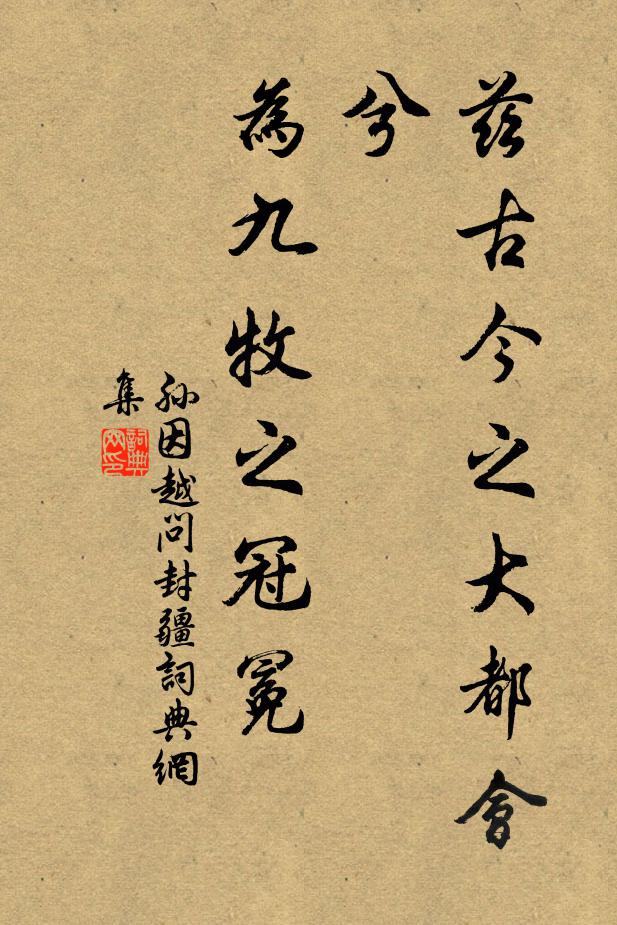 茲古今之大都會
兮
為九牧之冠冕
孫因越問封疆詞典網
集
詞典
網印